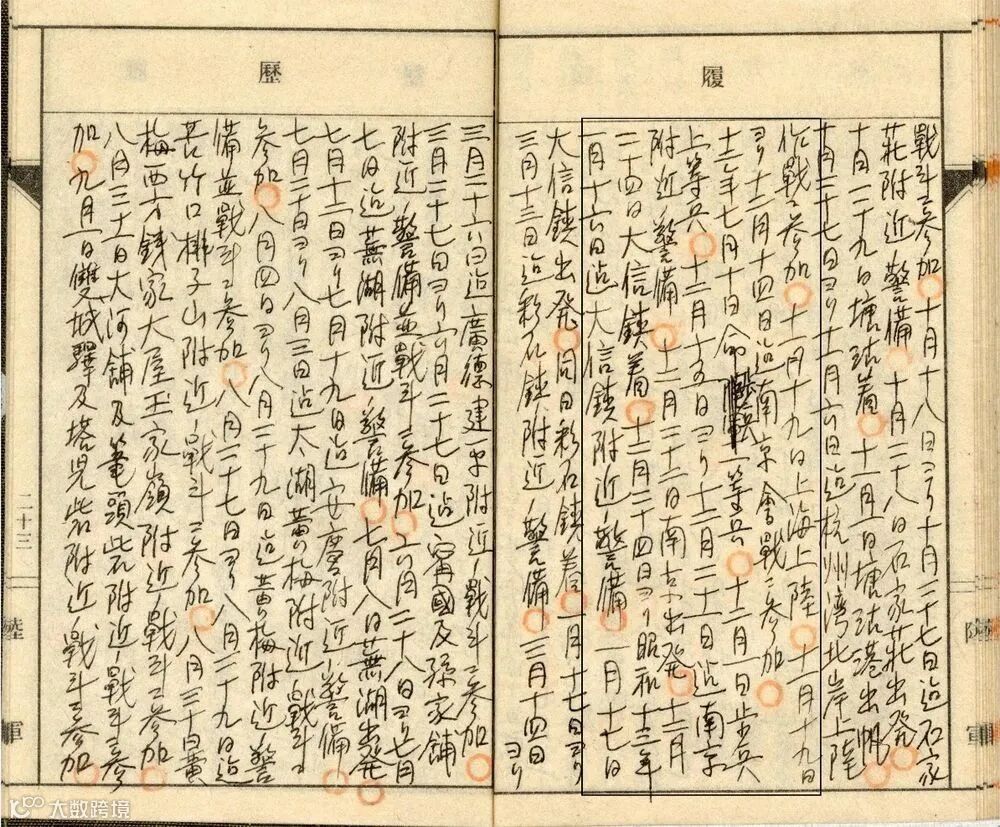 履
戦斗ニ参加十月十八日ヨリ十月二十七日迄石家
荘附近ノ警備十月二十八日石家荘出発
十月二十九日塘沽着十一月一日塘沽港出帆
十月二十七日ヨリ十一月六日迄杭州湾北岸上陸
作戦ニ参加十一月十九日上海上陸十一月十九日
ヨリ十二月十四日迄南京會戦ニ参加
十二年七月十日命一等兵十二月一日歩兵
上等兵十二月十五日ヨリ十二月二十一日迄南京
附近ノ警備十二月二十二日南京出発十二月
二十四日大信鎮着十二月二十四日ヨリ昭和十三年
一月十六日迄大信鎮附近ノ警備一月十七日
大信鎮出発同日彩石鎮着一月十七日ヨリ
三月十三日迄彩石鎮附近ノ警備三月十四日ヨリ
陸軍
歴
三月二十六日迄廣德建平附近ノ戦斗ニ参加
三月二十七日ヨリ六月二十七日迄甯國及孫家舗
附近ノ警備並戦斗ニ参加六月二十八日ヨリ七月
七日迄蕪湖附近ノ警備七月八日蕪湖出発
七月十二日ヨリ七月十九日迄安慶附近ノ警備
七月二十日ヨリ八月三日迄太湖黄梅附近ノ戦斗ニ
参加八月四日ヨリ八月二十九日迄黄梅附近ノ警
備並戦斗ニ参加八月二十七日ヨリ八月二十九日迄
苦竹口排子山附近ノ戦斗ニ参加八月三十日黄
梅西方錢家大屋王家嶺附近ノ戦斗ニ参加
八月三十一日大河舗及筆頭岩附近ノ戦斗ニ参
加九月一日雙城驛及塔兒岩附近ノ戦斗ニ参加
二十三
陸軍
大数跨境